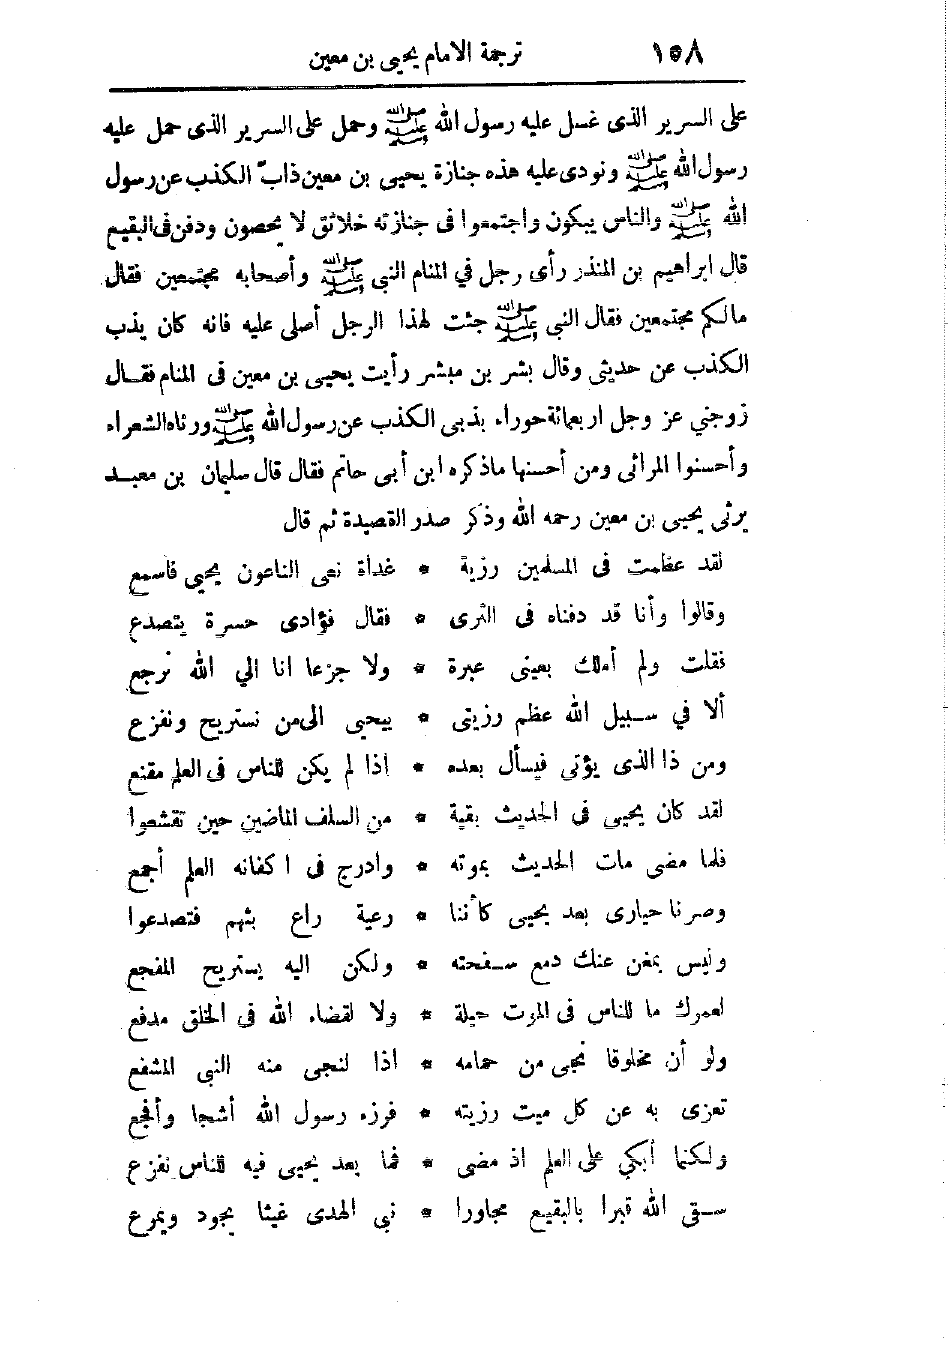 ١٥٨ ترجمة الامام يحيى بن معين
على السرير الذى غسل عليه رسول الله ﷺ وحمل على السرير الذى حمل عليه
رسول الله ﷺ ونودى عليه هذه جنازة يحيى بن معين ذابّ الكذب عن رسول
الله ﷺ والناس يبكون واجتمعوا فى جنازته خلائق لا يحصون ودفن فى البقيع
قال ابراهيم بن المنذر رأى رجل في المنام النبي ﷺ وأصحابه مجتمعين فقال
مالكم مجتمعين فقال النبي ﷺ جئت لهذا الرجل أصلى عليه فانه كان يذب
الكذب عن حديثى وقال بشر بن مبشر رأيت يحيى بن معين فى المنام فقال
زوجني عز وجل اربعمائة حوراء بذبى الكذب عن رسول الله ﷺ ورثاه الشعراء
وأحسنوا المراثى ومن أحسنها ماذكره ابن أبى حاتم فقال قال سليمان بن معبد
يرثى يحيى بن معين رحمه الله وذكر صدر القصيدة ثم قال
لقد عظمت فى المسلمين رزية * غداة نعى الناعون يحيى فاسمع
وقالوا وأنا قد دفناه فى الثرى * فقال فؤادى حسرة يتصدع
فقلت ولم أملك بعينى عبرة * ولا جزعا انا الي الله نرجع
ألا في سبيل الله عظم رزيتى * بيحيى الى من نستريح ونفزع
ومن ذا الذى يؤتى فيسأل بعده * اذا لم يكن للناس فى العلم مقنع
لقد كان يحيى فى الحديث بقية * من السلف الماضين حين تقشعوا
فلما مضى مات الحديث بموته * وادرج فى اكفانه العلم أجمع
وصرنا حيارى بعد يحيى كأننا * رعية راع بثهم فتصدعوا
وليس بمغن عنك دمع سفحته * ولكن اليه يستريح المفجع
لعمرك ما للناس فى الموت حيلة * ولا لقضاء الله فى الخلق مدفع
ولو أن مخلوقا نجى من حمامه * اذا لنجى منه النبى المشفع
تعزى به عن كل ميت رزيته * فرزء رسول الله أشجا وأفجع
ولكنما أبكي على العلم اذ مضى * فما بعد يحيى فيه للناس نفزع
سقى الله قبرا بالبقيع مجاورا * نبى الهدى غيثا يجود ويمرع